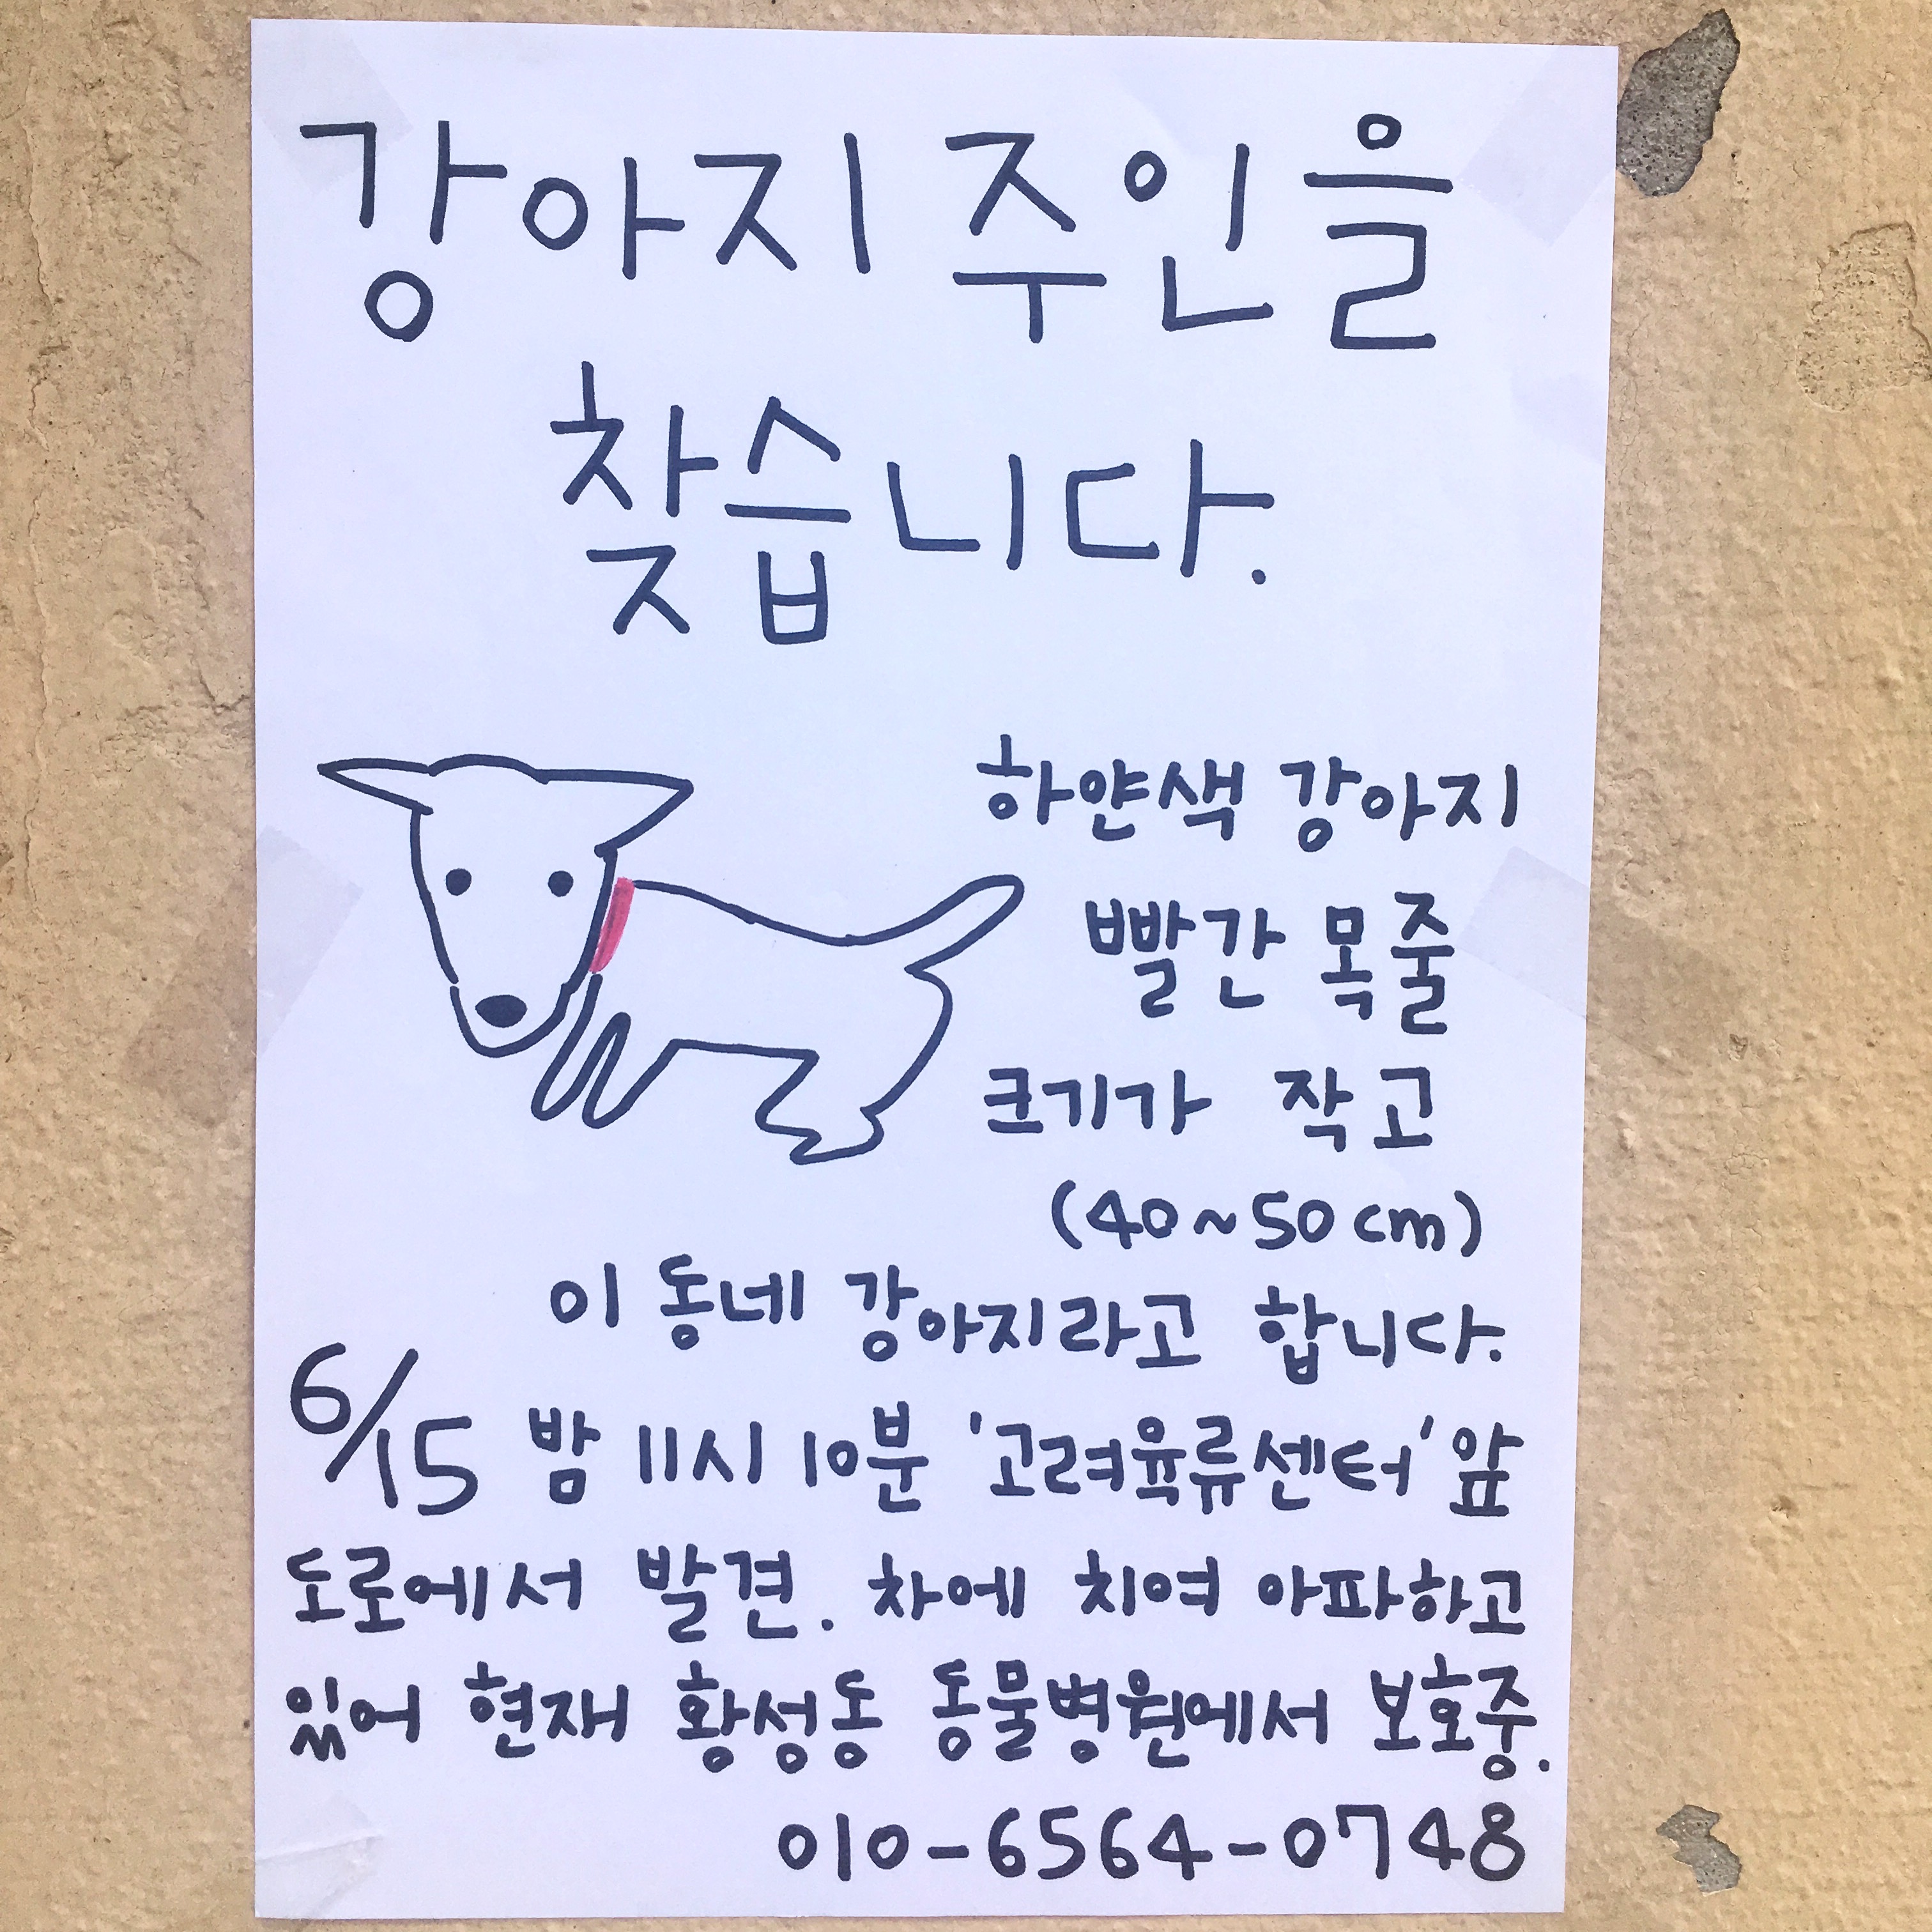 강아지 주인을
찾습니다.
하얀색 강아지
빨간 목줄
크기가 작고
(40~50cm)
이 동네 강아지라고 합니다.
6/15 밤 11시 10분 '고려육류센터' 앞
도로에서 발견. 차에 치여 아파하고
있어 현재 황성동 동물병원에서 보호중.
010-6564-0748